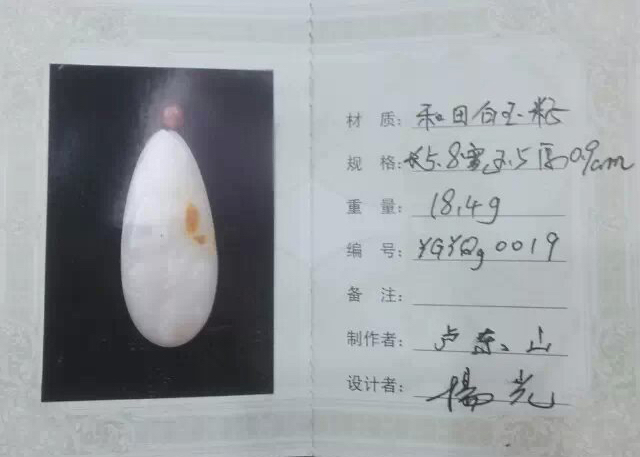 材 质: 和田白玉籽
规 格: 长5.8宽2.5厚0.9cm
重 量: 18.4g
编 号: YGYQg0019
备 注:
制作者: 卢东山
设计者: 杨光